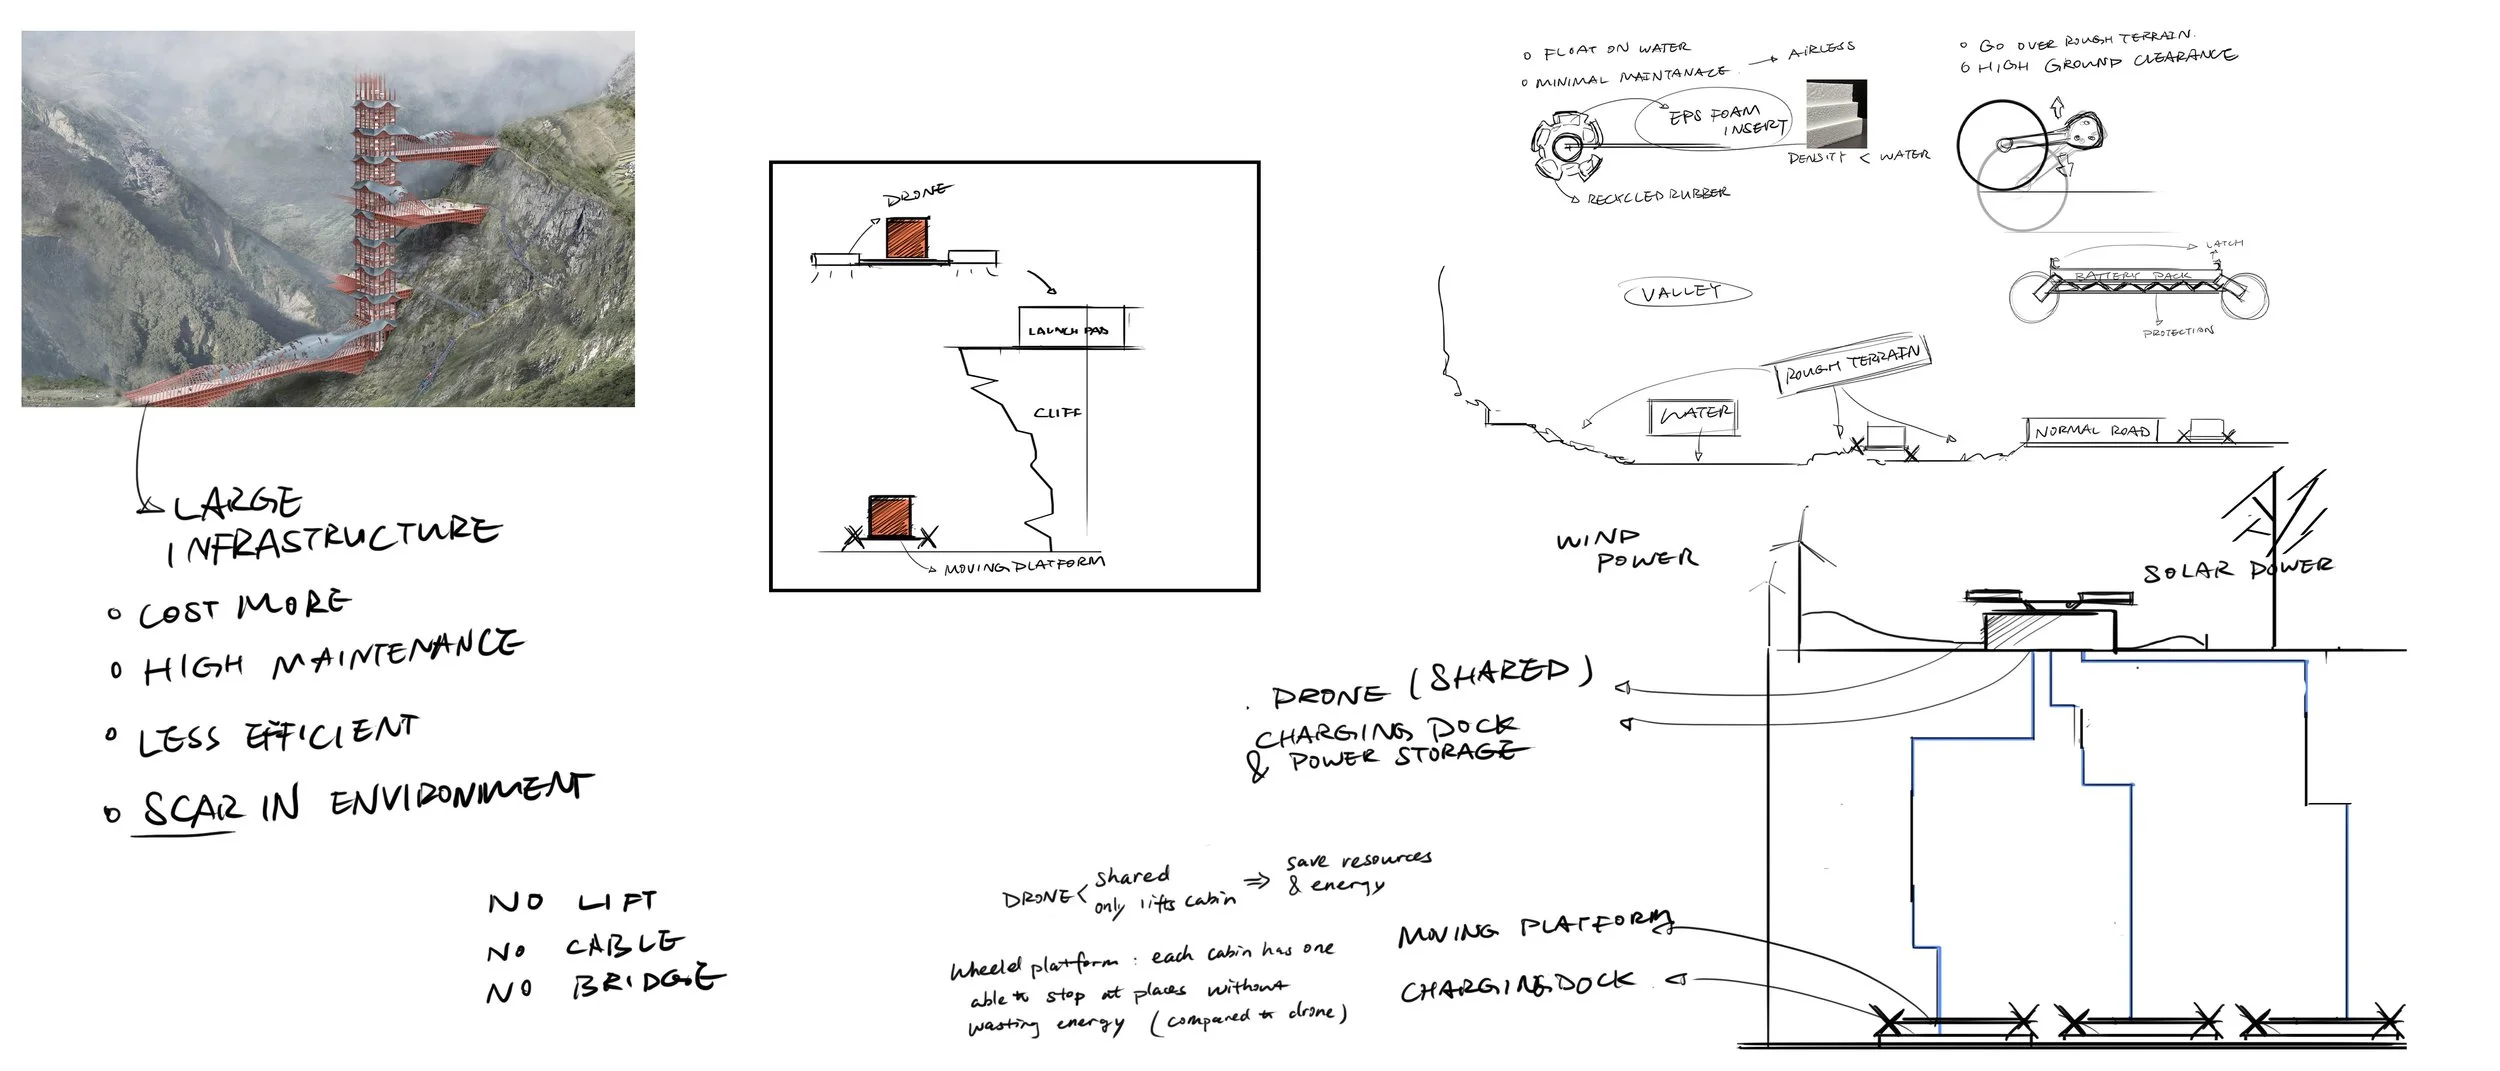 LARGE
INFRASTRUCTURE
COST MORE
HIGH MAINTENANCE
LESS EFFICIENT
SCAR IN ENVIRONMENT
NO LIFT
NO CABLE
NO BRIDGE
DRONE
LAUNCH PAD
CLIFF
MOVING PLATFORM
FLOAT ON WATER
MINIMAL MAINTANACE
AIRLESS
EPS FOAM
INSERT
DENSITY < WATER
RECYCLED RUBBER
GO OVER ROUGH TERRAIN.
HIGH GROUND CLEARANCE
LATCH
BATTERY PACK
PROTECTION
VALLEY
ROUGH TERRAIN
WATER
NORMAL ROAD
WIND
POWER
SOLAR POWER
DRONE (SHARED)
CHARGING DOCK
& POWER STORAGE
DRONE < shared
only lifts cabin
⇒ save resources
& energy
Wheeled platform : each cabin has one
able to stop at places without
wasting energy (compared to drone)
MOVING PLATFORM
CHARGING DOCK